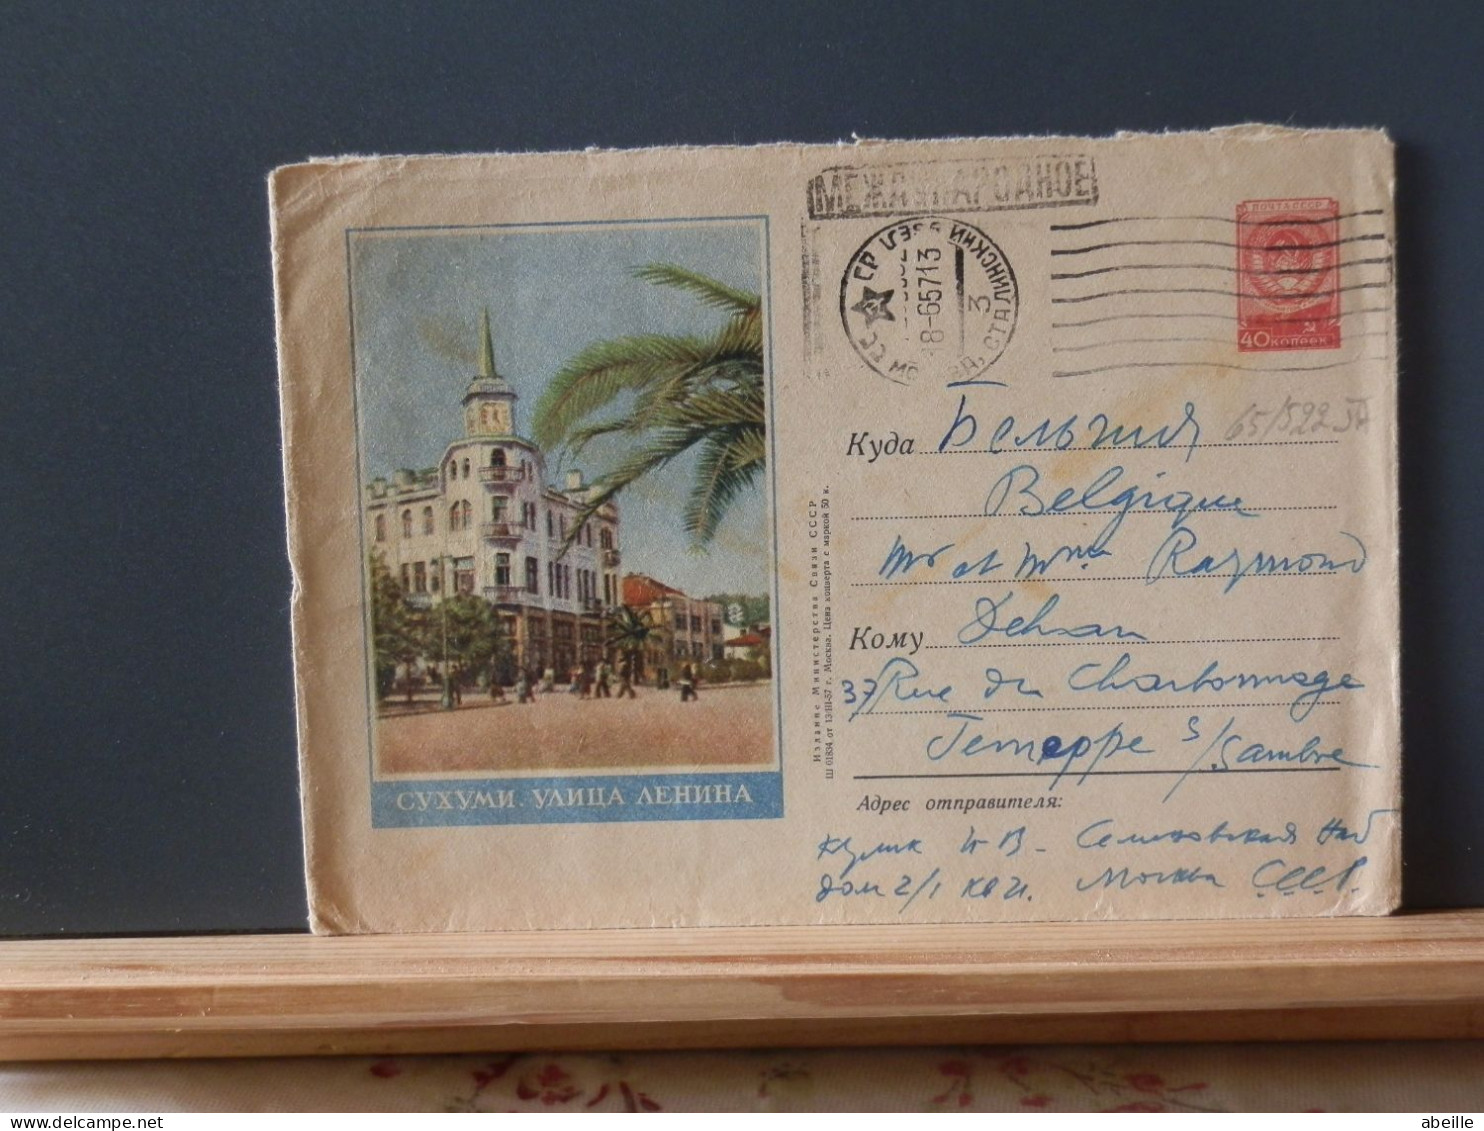 МЕЖДУНАРОДНОЕ
ПОЧТА СССР
40 КОПЕЕК
18-65713
СТАЛИНСКИЙ
3
65/522
Куда Бельгия
Belgique
Mr et Mme Raymond
Кому Dehan
37 Rue du Charbonnage
Jemeppe s/Sambre
Адрес отправителя:
Семеновская наб
дом 2/1 кв 21. Москва СССР.
Издание Министерства Связи СССР
Ш 01834 от 13/III-57 г. Москва. Цена конверта с маркой 50 к.
СУХУМИ. УЛИЦА ЛЕНИНА
abeille